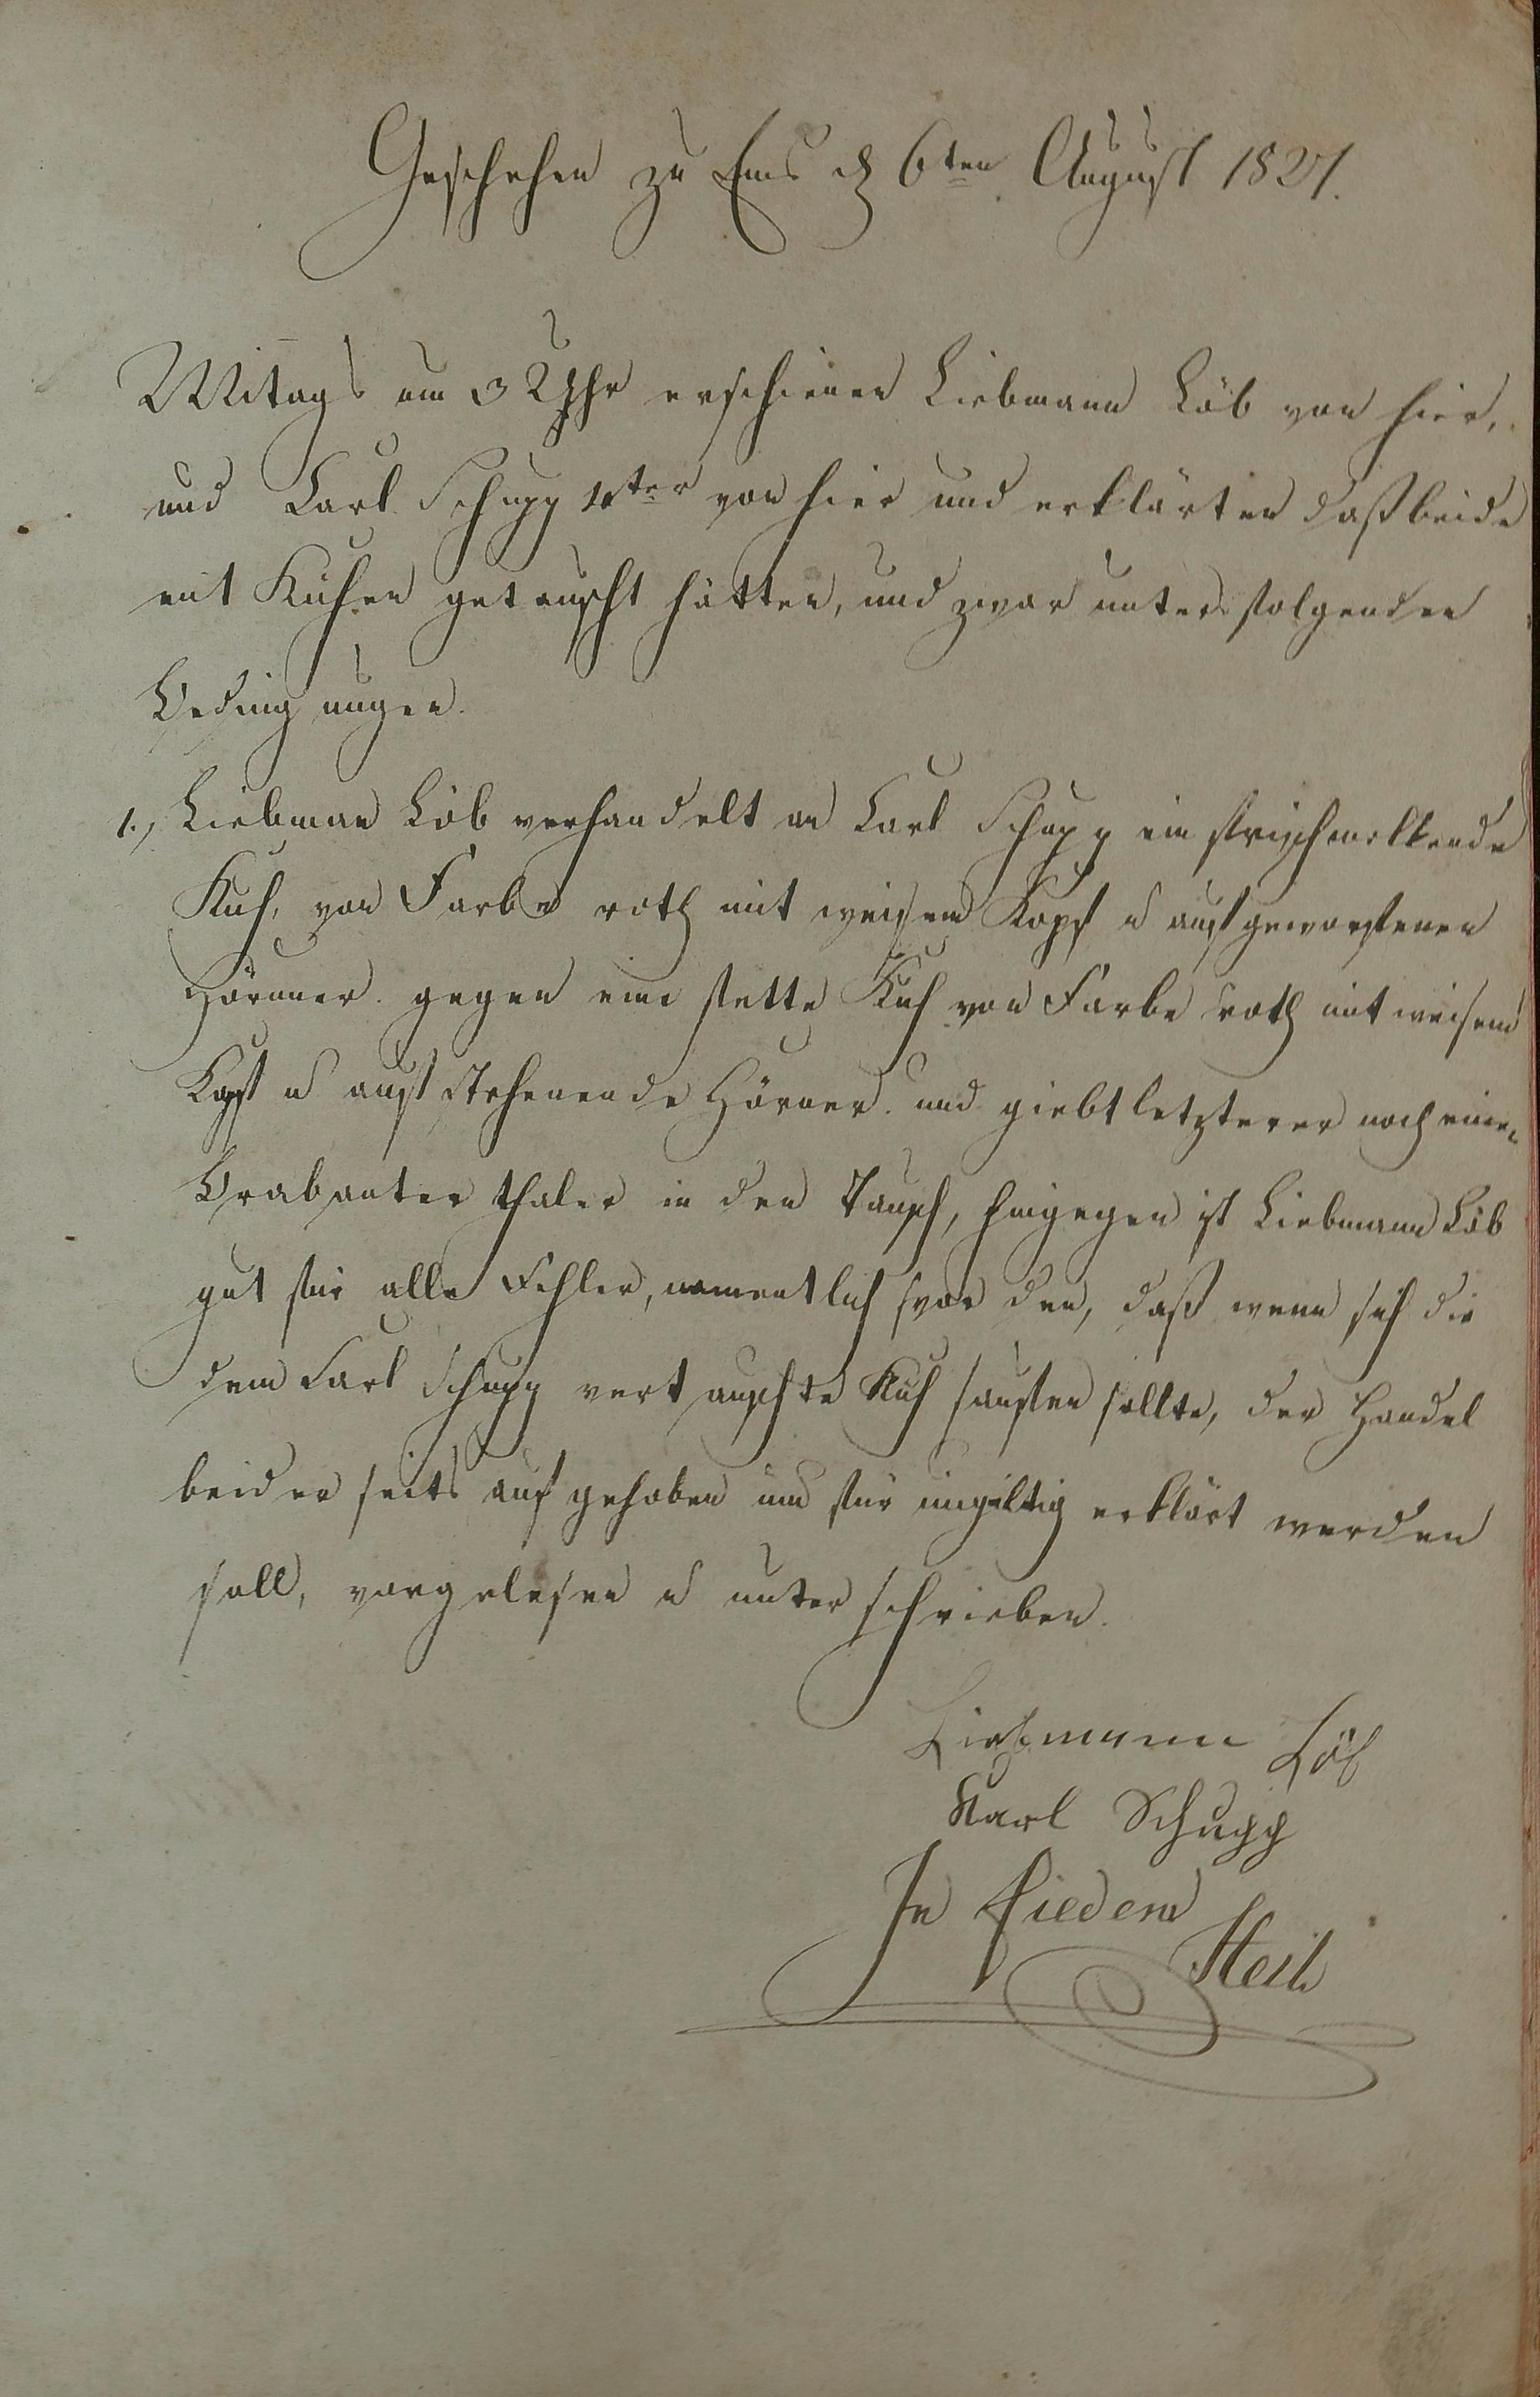 Geschehen zu Ems d 6ten August 1821.
Mitags um 3 Uhr erschienen Liebmann Löb von hier,
und Carl Schupp 1ter von hier und erklärten daß beide
mit Kühen getauscht hätten, und zwar unter folgenden
Bedingungen.
1., Liebman Löb verhandelt an Carl Schupp ein frischmelkende
Kuh, von Farbe roth mit weisem Kopf u aufgeworfenen
Hörnner. gegen eine fette Kuh von Farbe roth mit weisem
Kopf u auf stehenende Hörner. und giebt letzterer noch einen
Brabanter thaler in den Tausch, hingegen ist Liebmann Löb
gut für alle Fehler, namentlich vor den, daß wenn sich die
dem Carl Schupp vertauschte Kuh saufen sollte, der Handel
beiderseits aufgehoben und für ungiltig erklärt werden
soll, vorgelesen u unterschrieben.
Liebmann Löb
Karl Schupp
In fidem